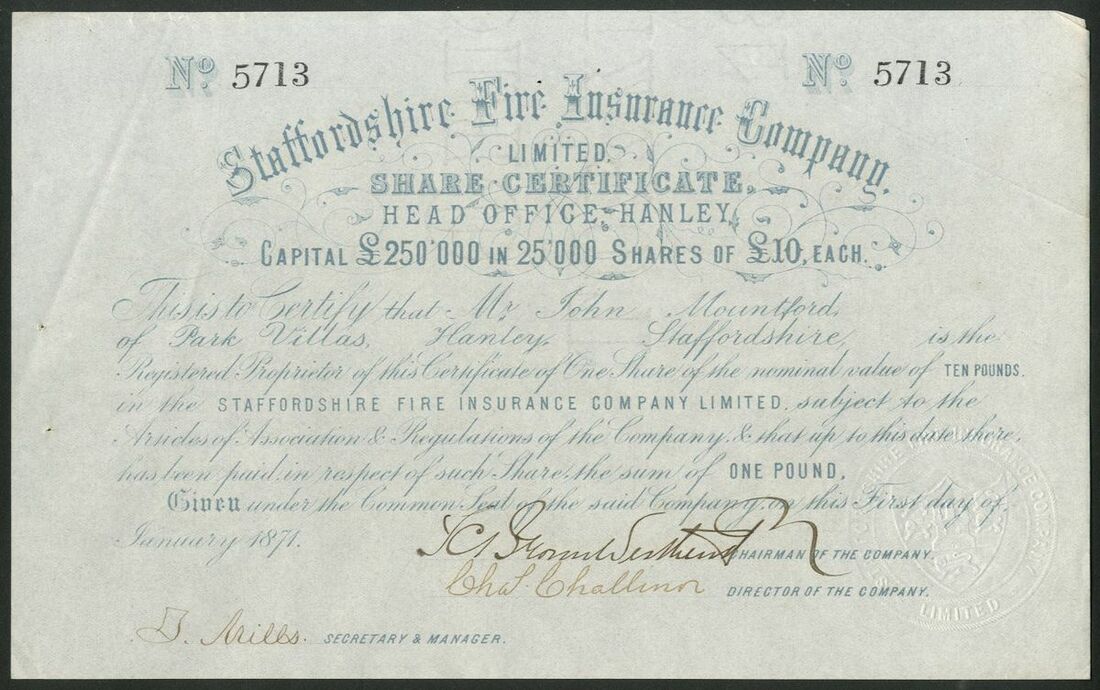 No 5713 No 5713
Staffordshire Fire Insurance Company.
LIMITED.
SHARE CERTIFICATE.
HEAD OFFICE, HANLEY,
CAPITAL £250'000 IN 25'000 SHARES OF £10, EACH.
This is to Certify that Mr John Mountford,
of Park Villas, Hanley, Staffordshire, is the
Registered Proprietor of this Certificate of One Share of the nominal value of TEN POUNDS.
in the STAFFORDSHIRE FIRE INSURANCE COMPANY LIMITED, subject to the
Articles of Association & Regulations of the Company, & that up to this date there,
has been paid, in respect of such Share, the sum of ONE POUND,
Given under the Common Seal of the said Company, on this First day of,
January 1871.
CHAIRMAN OF THE COMPANY.
Chas. Challinor DIRECTOR OF THE COMPANY.
Mills. SECRETARY & MANAGER.
INSURANCE COMPANY
LIMITED